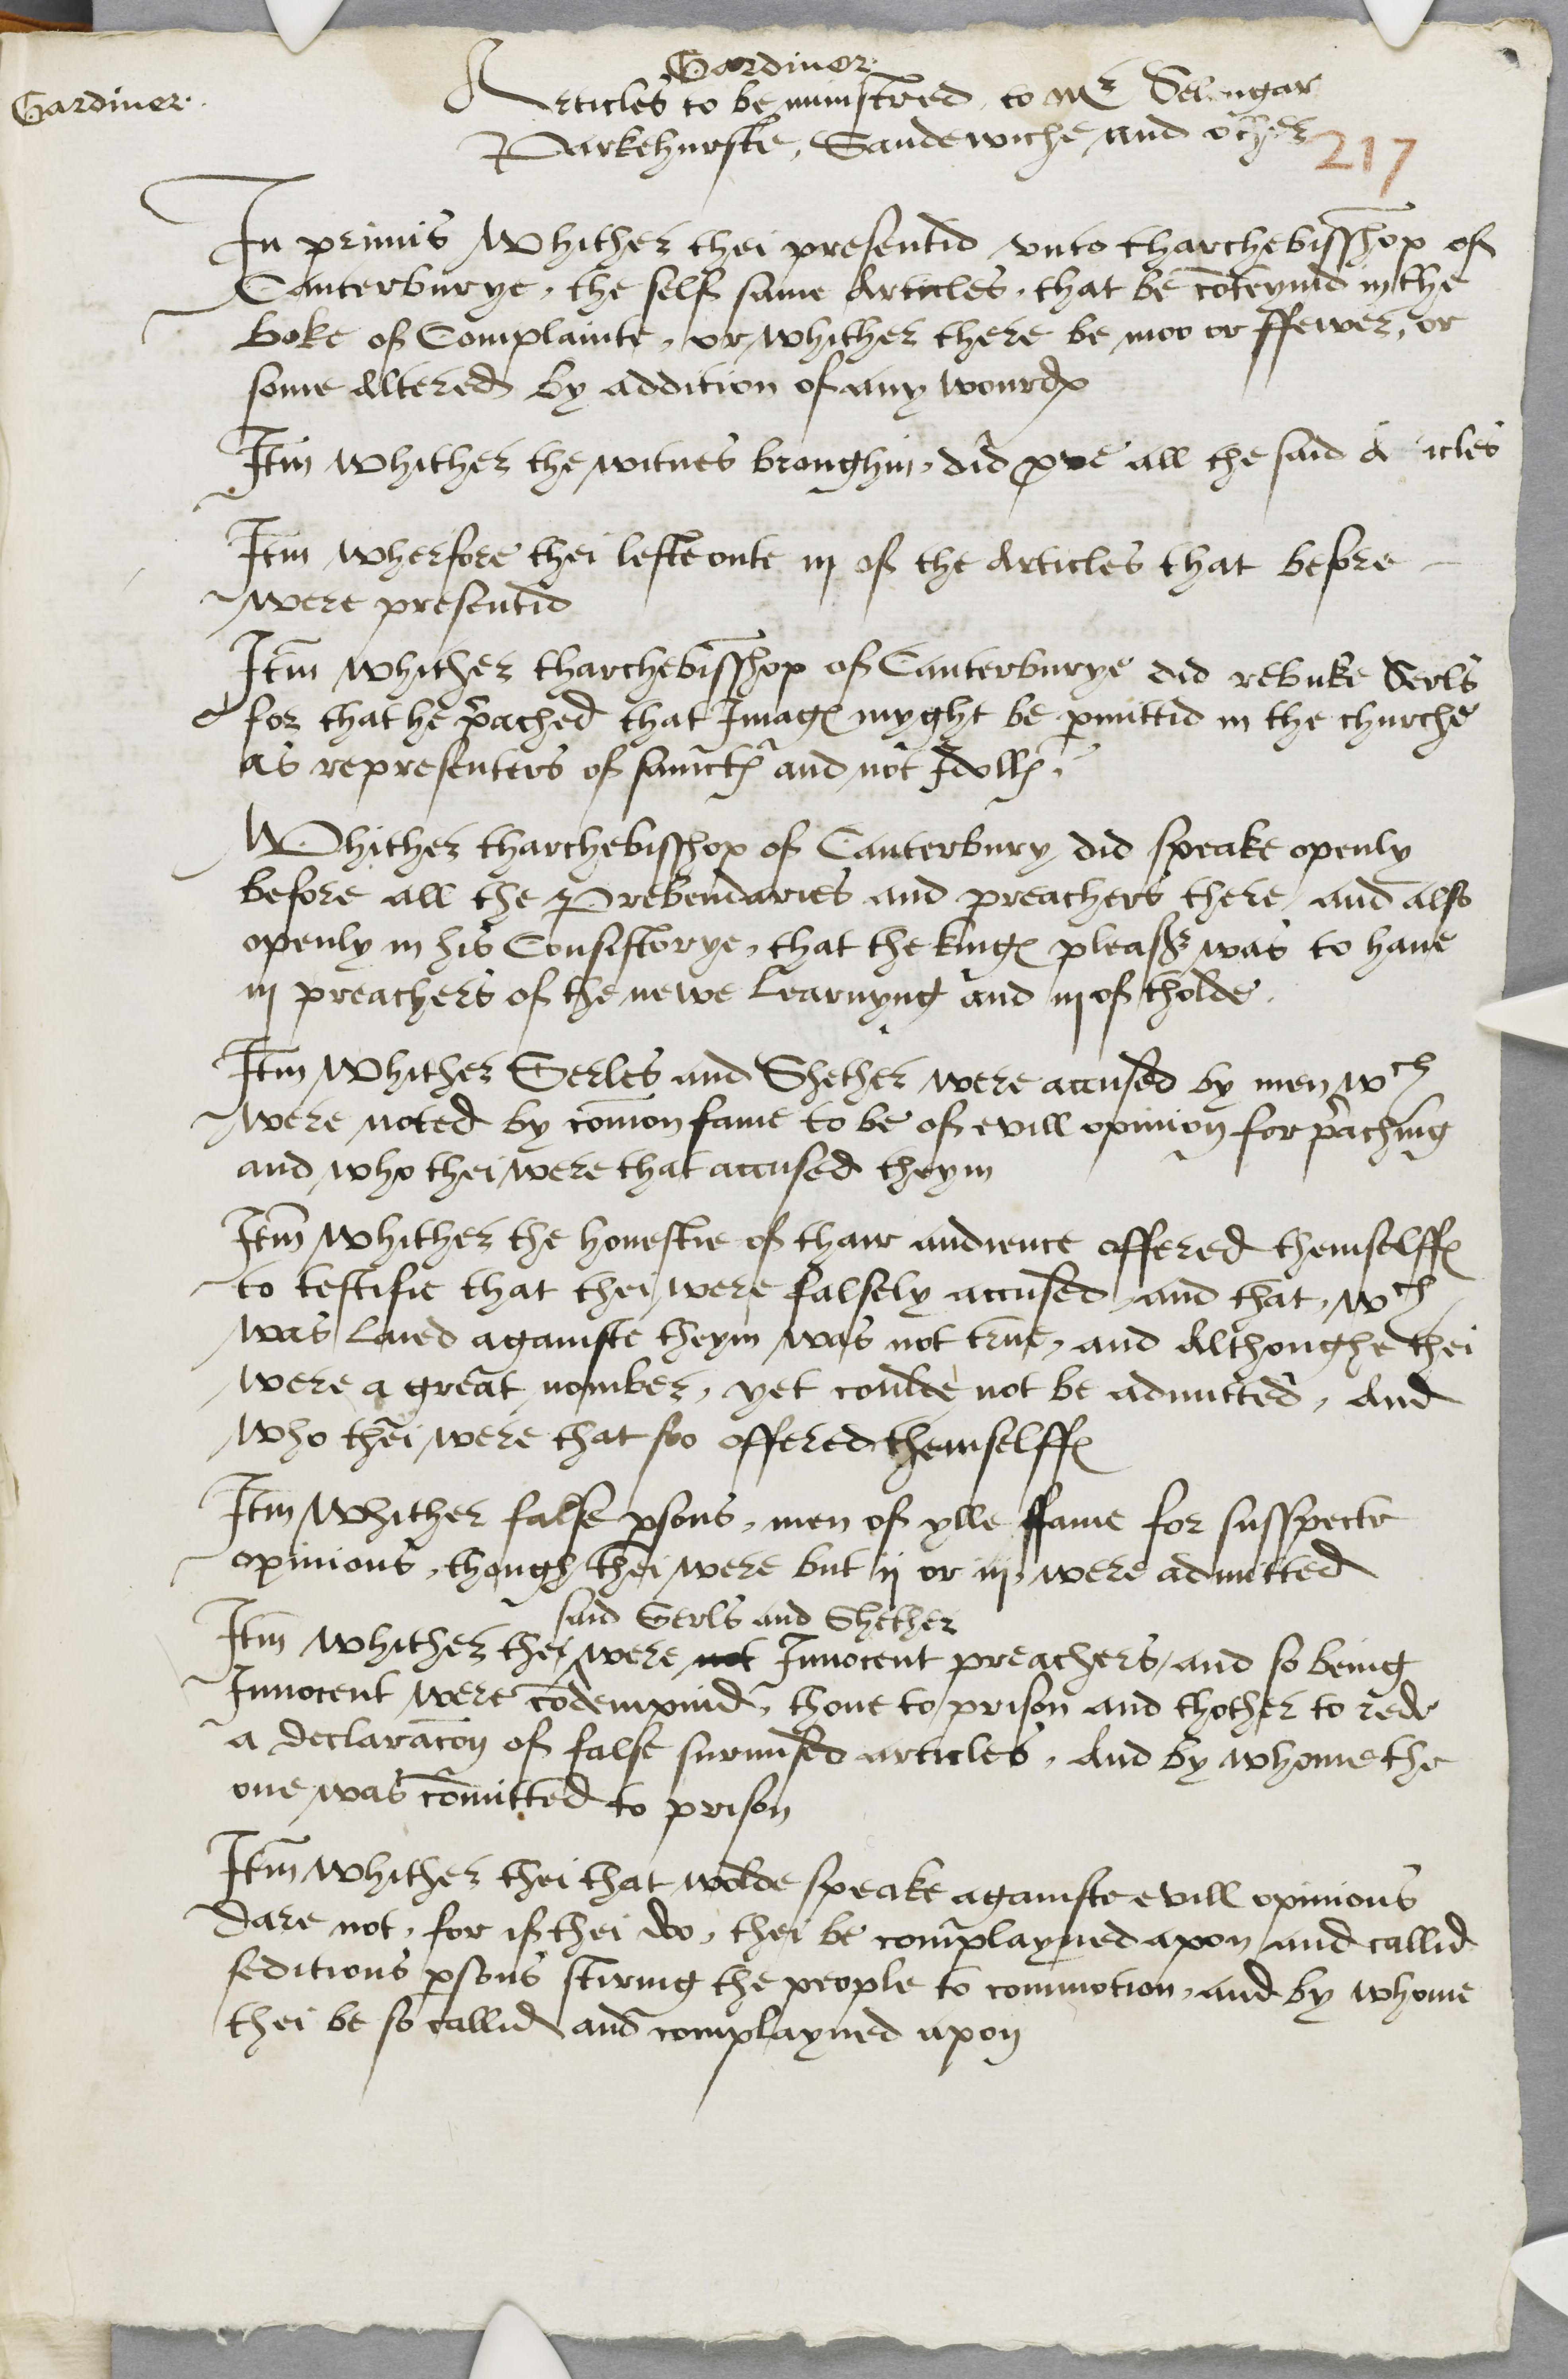 Gardiner.
Gardiner.
Articles to be ministred to Mr Selengar
Parkehurste, Sandewiche and other
217
In primis Whither thei presentid vnto tharchebisshop of
Canterburye, the self same Articles, that be cōteynid in the
boke of Complainte, or whither there be moo or ffewer, or
some Altered by addition of any wourdes
Itm whither the witnes broughtin, did prove all the said A icles
Itm wherfore thei lefte oute iij of the Articles that before
were presentid
Itm whither tharchebisshop of Canterburye did rebuke Serls
for that he p̄ached that Images myght be p̱mittid in the churche
as representers of sainctes and not Idolles.
Whither tharchebisshop of Canterbury did speake openly
before all the Prebendaries and preachers there and also
openly in his Consistorye, that the kinges pleasr was to haue
iij preachers of the newe Learnyng and iij of tholde.
Itm Whither Serles and Shether were accused by men wch
were noted by com̄on fame to be of evill opinion for p̄aching
and who thei were that accused theym
Itm whither the honestie of thair audience offered themselffes
to testifie that thei were falsely accused and that, wch
was laied againste theym was not true, and Althoughe thei
were a great nomber, yet coulde not be admitted, And
who thei were that soo offered themselffes
Itm Whither false p̱sons, men of ylle ffame for susspecte
opinions, though thei were but ij or iij, were admitted
said Serls and Shether
Itm whither the were not Innocent preachers, and so being
Innocent were cōdempnid, thone to prison and thother to rede
a declaracōn of false surmised articles, And by whome the
one was cōmitted to prison
Itm whither thei that wolde speake againste evill opinions
dare not, for if thei do, thei be complayned apon and callid
seditious p̱sons stiring the people to commotion, and by whome
thei be so callid and complayned apon